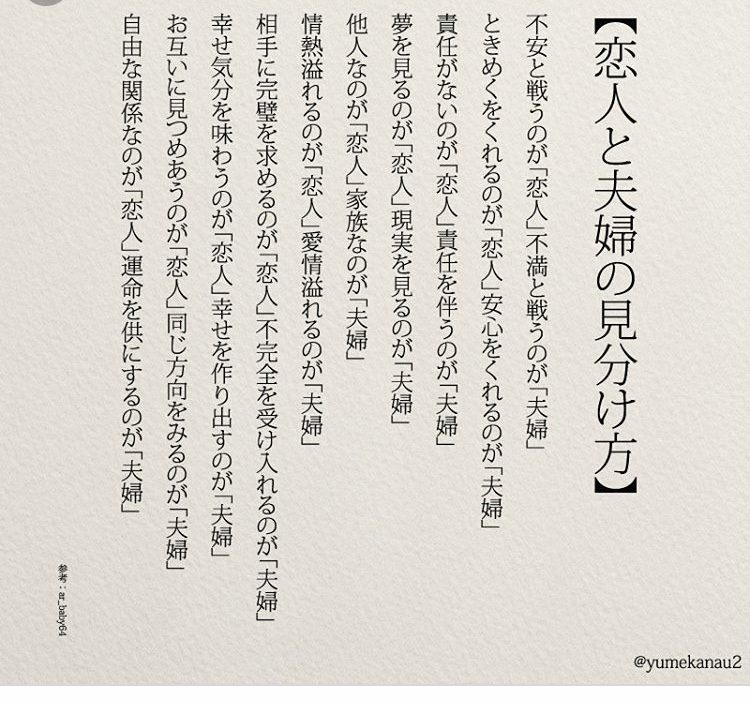 【恋人と夫婦の見分け方】
不安と戦うのが「恋人」不満と戦うのが「夫婦」
ときめくをくれるのが「恋人」安心をくれるのが「夫婦」
責任がないのが「恋人」責任を伴うのが「夫婦」
夢を見るのが「恋人」現実を見るのが「夫婦」
他人なのが「恋人」家族なのが「夫婦」
情熱溢れるのが「恋人」愛情溢れるのが「夫婦」
相手に完璧を求めるのが「恋人」不完全を受け入れるのが「夫婦」
幸せ気分を味わうのが「恋人」幸せを作り出すのが「夫婦」
お互いに見つめあうのが「恋人」同じ方向をみるのが「夫婦」
自由な関係なのが「恋人」運命を供にするのが「夫婦」
参考：ar_baby64
@yumekanau2